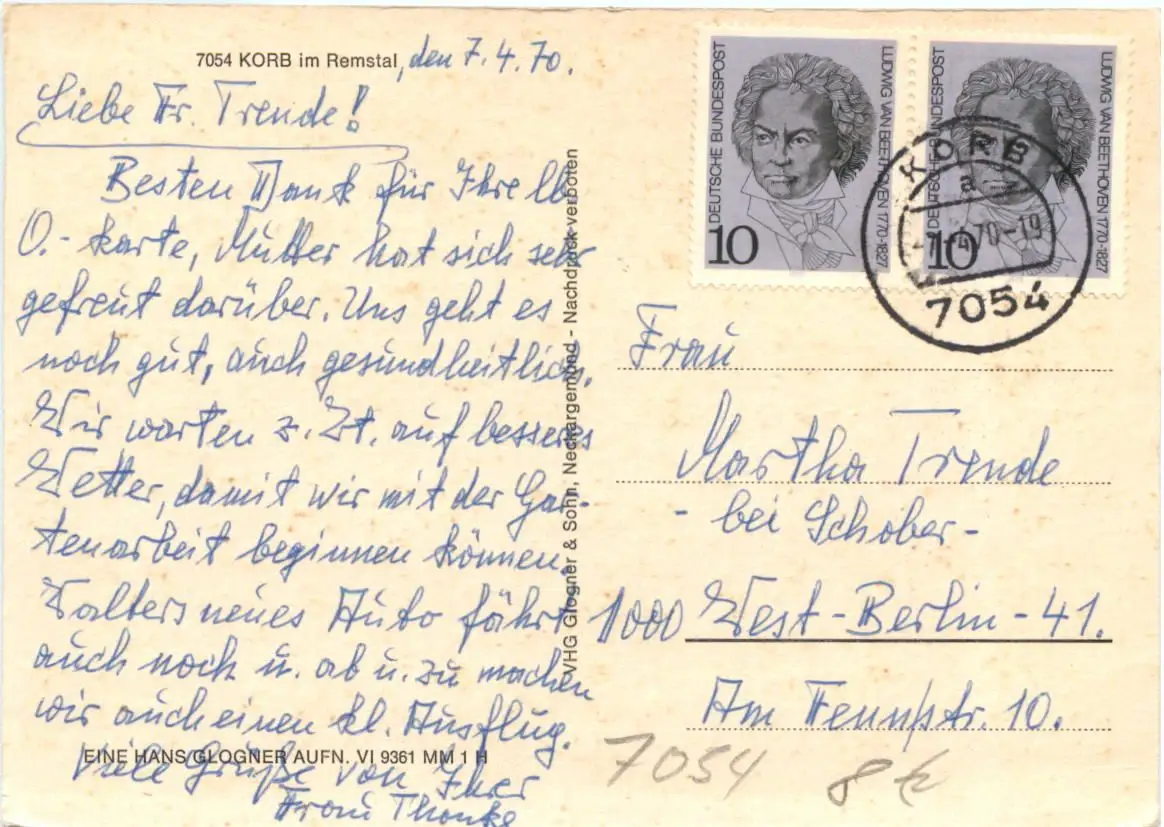 7054 KORB im Remstal, den 7.4.70.
Liebe Fr. Trende!
Besten Dank für Ihre lb.
O.-karte, Mutter hat sich sehr
gefreut darüber. Uns geht es
noch gut, auch gesundheitlich.
Wir warten z. Zt. auf besseres
Wetter, damit wir mit der Gar-
tenarbeit beginnen können.
Walters neues Auto fährt
auch noch u. ab u. zu machen
wir auch einen kl. Ausflug.
Viele Grüße von Ihrer
Frau
EINE HANS GLOGNER AUFN. VI 9361 MM 1 H
VHG Glogner & Sohn, Neckargemünd - Nachdruck verboten
DEUTSCHE BUNDESPOST
10
LUDWIG VAN BEETHOVEN 1770-1827
DEUTSCHE BUNDESPOST
10
LUDWIG VAN BEETHOVEN 1770-1827
KORB
a
-7.4.70-19
7054
Frau
Martha Trende
- bei Schober -
1000 West-Berlin-41.
Am Fennpstr. 10.
7054